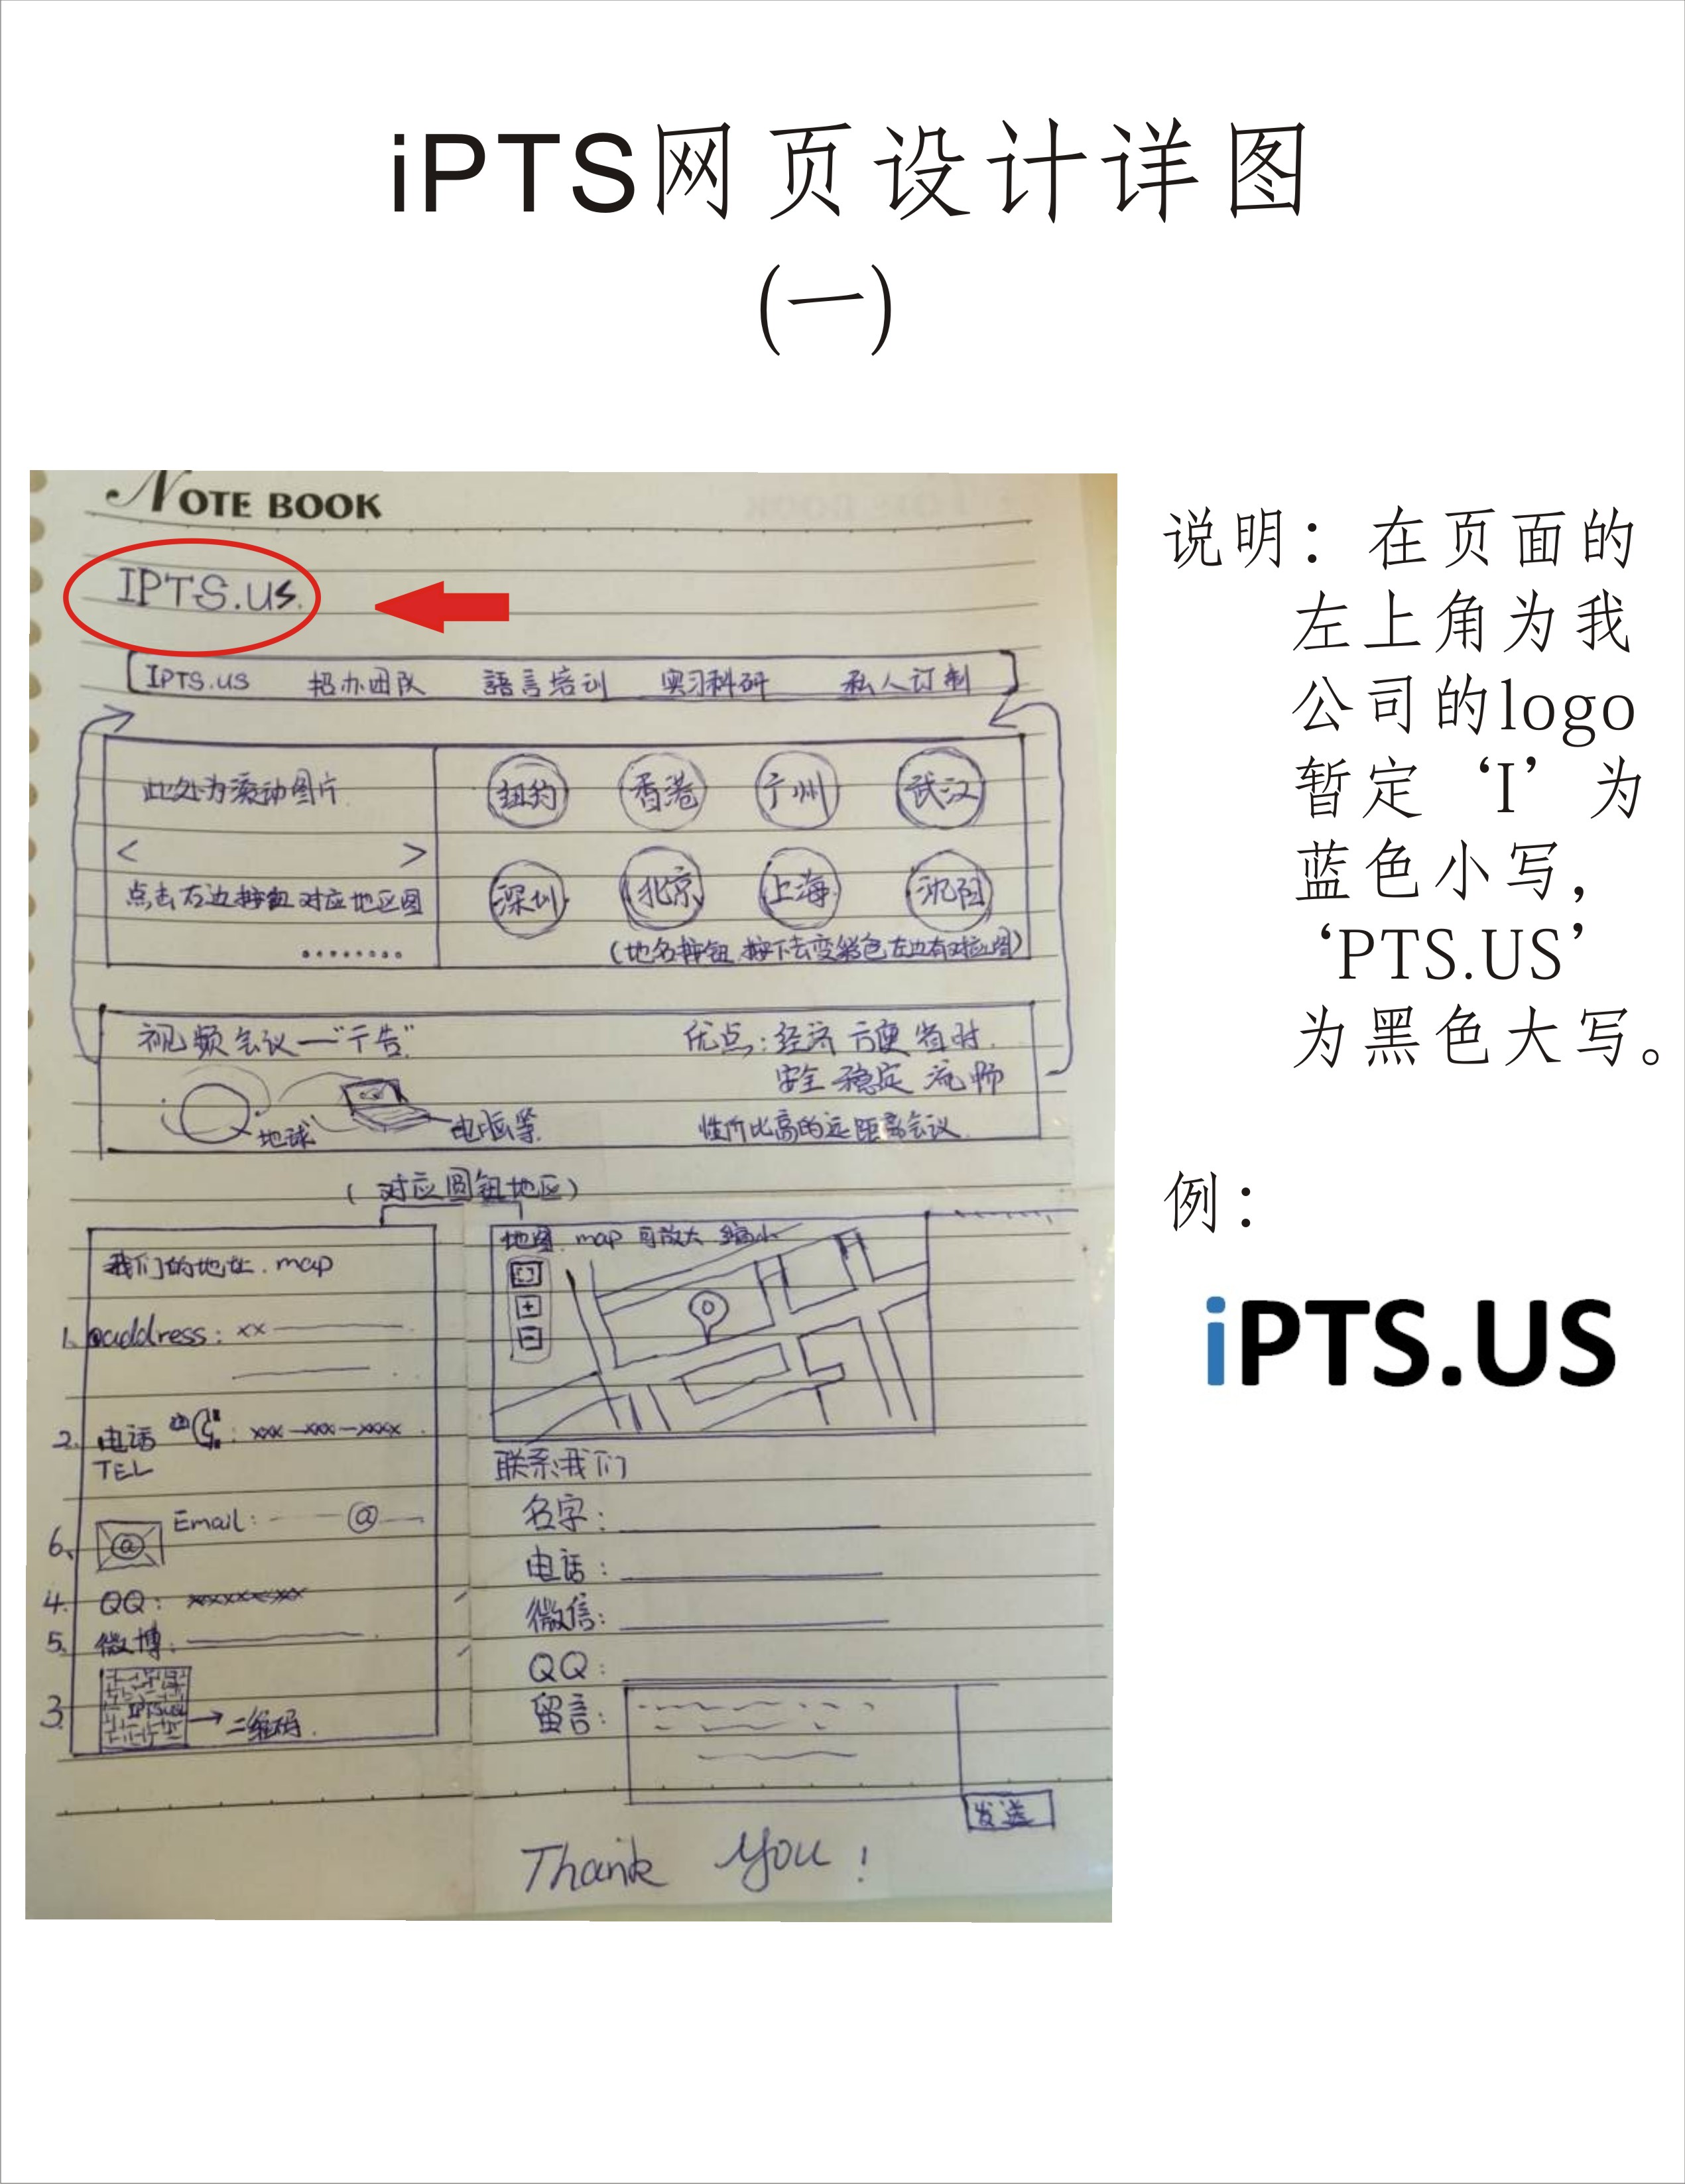 iPTS网页设计详图
(一)
NOTE BOOK
IPTS.US.
IPTS.US 招办团队 語言培训 实习科研 私人订制
此处为滚动图片
< >
点击右边按钮对应地区图
........
纽约 香港 广州 武汉
深圳 北京 上海 沈阳
(地名按钮 按下去变彩色 左边有对应图)
视频会议一"广告"
地球
电脑等
优点:经济 方便 省时.
安全 稳定 流畅
性价比高的远距离会议.
(对应圆钮地区)
我们的地址.map
1. address: xx
2. 电话 : xxx-xxx-xxxx.
TEL
6. @ Email: @
4. QQ: xxxxxxxx
5. 微博:
3. IPTS.US 二维码.
地图 map 可放大 缩小
+
-
联系我们
名字:
电话:
微信:
QQ:
留言:
发送
Thank You!
说明:在页面的
左上角为我
公司的logo
暂定‘I’为
蓝色小写,
‘PTS.US’
为黑色大写。
例:
iPTS.US